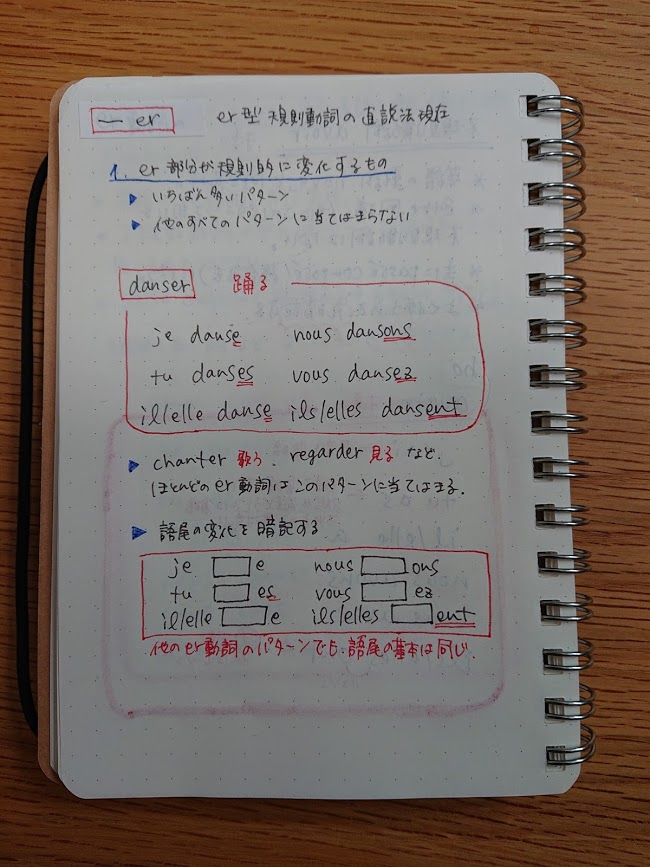 ー er er型 規則動詞の直説法現在
1. er部分が規則的に変化するもの
▶ いちばん多いパターン
▶ 他のすべてのパターンに当てはまらない
danser 踊る
je danse nous dansons
tu danses vous dansez
il/elle danse ils/elles dansent
▶ chanter 歌う、regarder 見る など、
ほとんどのer動詞はこのパターンに当てはまる。
▶ 語尾の変化を暗記する
je □e nous □ons
tu □es vous □ez
il/elle □e ils/elles □ent
他のer動詞のパターンでも、語尾の基本は同じ。